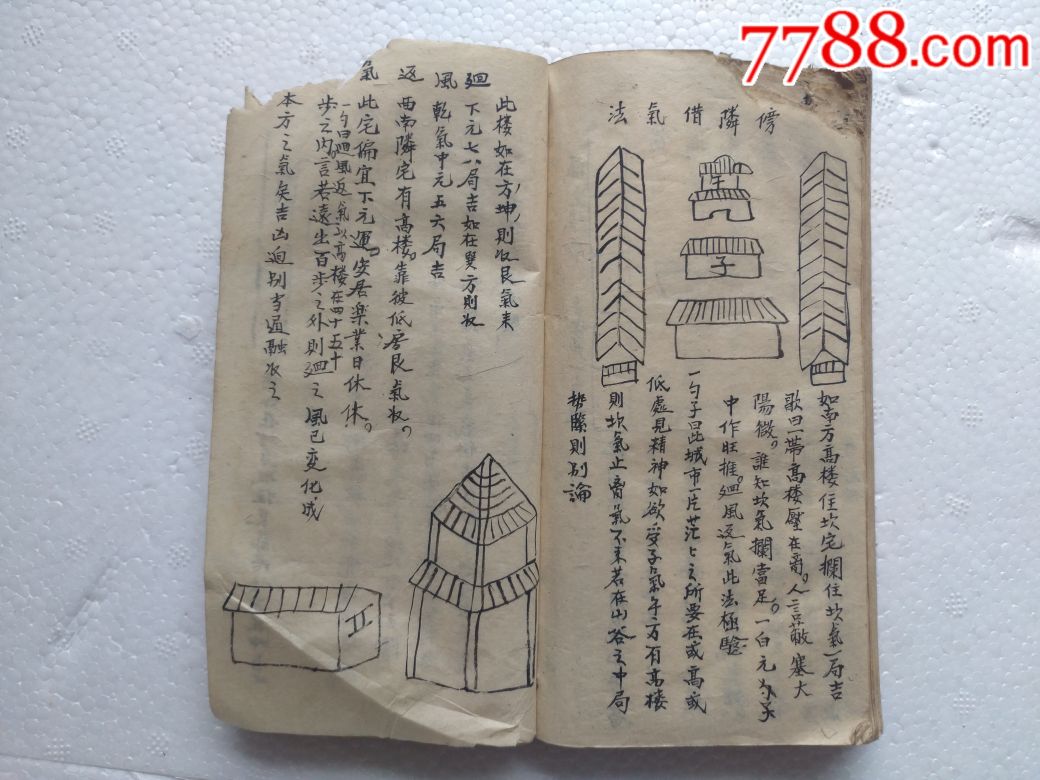 7788.com
傍隣借氣法
午
子
如南方高楼住坎宅攔住坎氣一局吉
歌曰一帶高楼壓在离人言蔽塞大
陽微誰知坎氣攔當足一白元为子
中作旺推廻風返氣此法極驗
一勺子曰此城市一片茫々之所要在或高或
低處見精神如欲受子氣午方有高楼
則坎氣止齊氣不來若在山谷之中局
緊則别論
廻風返氣
此楼如在方坤則收艮氣来
下元七八局吉如在巽方則收
乾氣中元五六局吉
西南隣宅有高楼靠彼低房艮氣收
此宅偏宜下元運安居楽業日休休
一勺曰廻風返氣以高楼在四十五十
步之内言若遠出百步之外則廻之風已变化成
本方之氣矣吉凶迥别当通融收之